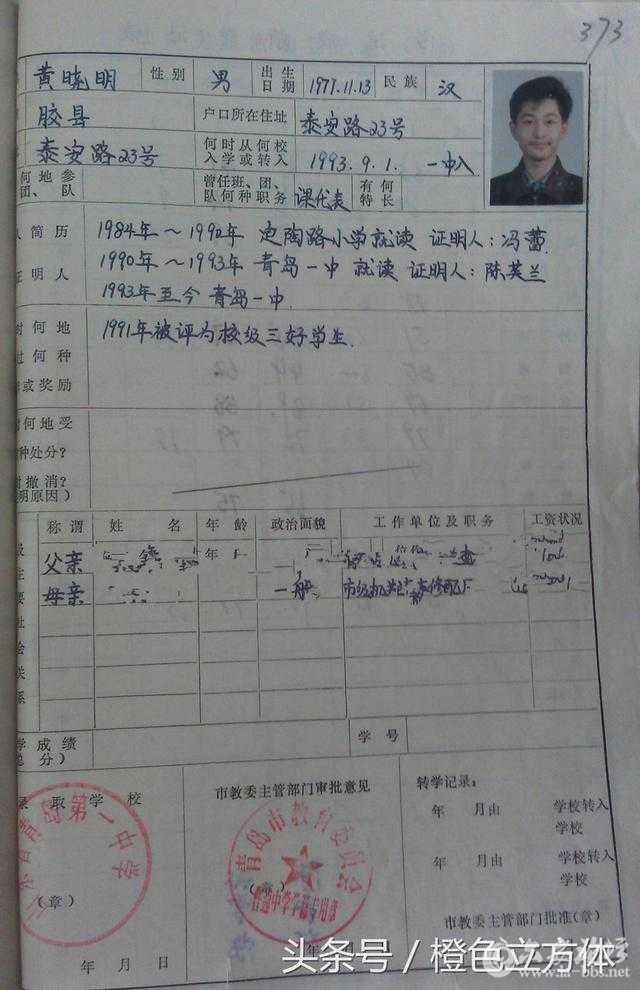 373
黄晓明 性别 男 出生日期 1977.11.13 民族 汉
胶县 户口所在住址 泰安路23号
泰安路23号 何时从何校入学或转入 1993.9.1. 一中入
何地参 团、队 曾任班、团、队何种职务 课代表 有何特长
简历 1984年～1990年 定陶路小学就读 证明人：冯蕾
证明人 1990年～1993年 青岛一中 就读 证明人：陈英兰
1993年至今 青岛一中
何地 1991年被评为校级三好学生.
何种
或奖励
何地受
种处分？
撤消？
明原因）
称谓 姓名 年龄 政治面貌 工作单位及职务 工资状况
父亲
母亲 一般
要
社
会
关
系
学成绩 学号
总分）
录取学校 市教委主管部门审批意见 转学记录：
年 月由 学校转入
学校
年 月由 学校转入
学校
青岛第一中学
青岛市教育委员会
（章） （章）
市教委主管部门批准（章）
年 月 日 年 月 日
头条号 / 橙色立方体
www.la-bbs.net